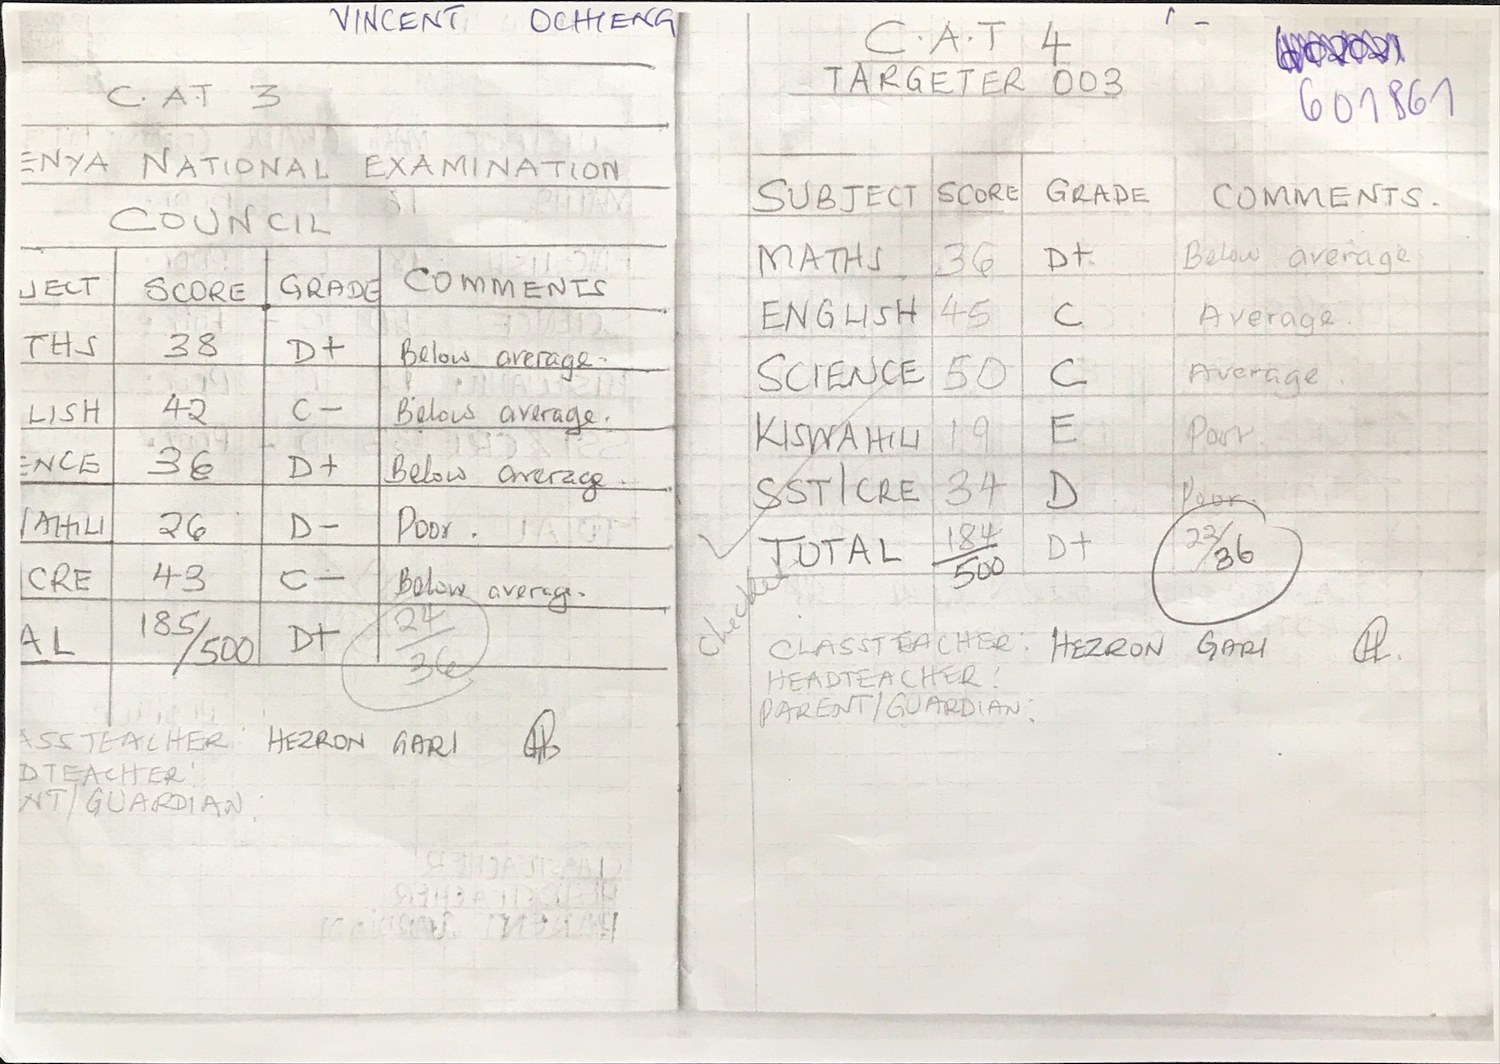 VINCENT OCHIENG
C.A.T 3
ENYA NATIONAL EXAMINATION
COUNCIL
JECT SCORE GRADE COMMENTS
THS 38 D+ Below average.
LISH 42 C- Below average.
ENCE 36 D+ Below average.
AHILI 26 D- Poor.
CRE 43 C- Below average.
AL 185/500 D+ 24/36
ASSTEACHER: HEZRON GARI
DTEACHER:
NT/GUARDIAN:
C.A.T 4
TARGETER 003
601861
SUBJECT SCORE GRADE COMMENTS.
MATHS 36 D+ Below average
ENGLISH 45 C Average.
SCIENCE 50 C Average.
KISWAHILI 19 E Poor.
SST/CRE 34 D Poor.
TOTAL 184/500 D+ 22/36
checked
CLASSTEACHER: HEZRON GARI
HEADTEACHER:
PARENT/GUARDIAN: